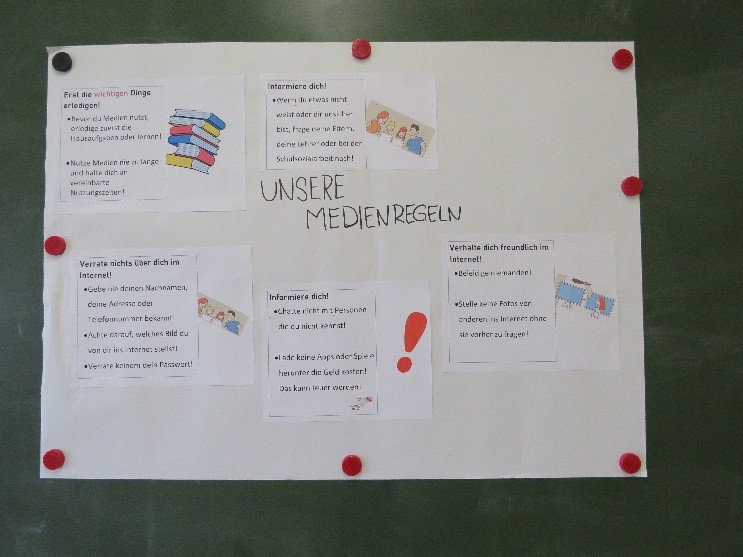 Erst die wichtigen Dinge
erledigen!
•Bevor du Medien nutzt,
erledige zuerst die
Hausaufgaben oder lernen!
•Nutze Medien nie zu lange
und halte dich an
vereinbarte
Nutzungszeiten!
Informiere dich!
•Wenn du etwas nicht
weist oder dir unsicher
bist, frage deine Eltern,
deine Lehrer oder bei der
Schulsozialarbeit nach!
UNSERE
MEDIENREGELN
Verrate nichts über dich im
Internet!
•Gebe nie deinen Nachnamen,
deine Adresse oder
Telefonnummer bekannt!
•Achte darauf, welches Bild du
von dir ins Internet stellst!
•Verrate keinem dein Passwort!
Informiere dich!
•Chatte nicht mit Personen
die du nicht kennst!
•Lade keine Apps oder Spiele
herunter die Geld kosten!
Das kann teuer werden!
Verhalte dich freundlich im
Internet!
•Beleidige niemanden!
•Stelle keine Fotos von
anderen ins Internet ohne
sie vorher zu fragen!